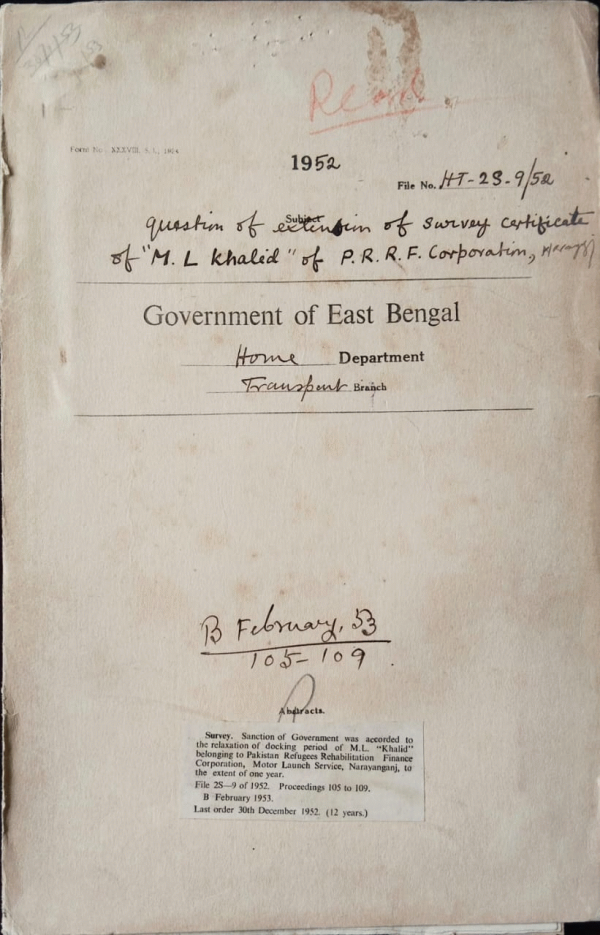 Recd
Form No. XXXVIII
1952
File No. HT-2S-9/52
Subject
Question of extension of survey certificate
of "M. L Khalid" of P. R. R. F. Corporation,
Government of East Bengal
Home Department
Transport Branch
B February, 53
105-109
Abstracts.
Survey. Sanction of Government was accorded to
the relaxation of docking period of M.L. "Khalid"
belonging to Pakistan Refugees Rehabilitation Finance
Corporation, Motor Launch Service, Narayanganj, to
the extent of one year.
File 2S—9 of 1952. Proceedings 105 to 109.
B February 1953.
Last order 30th December 1952. (12 years.)